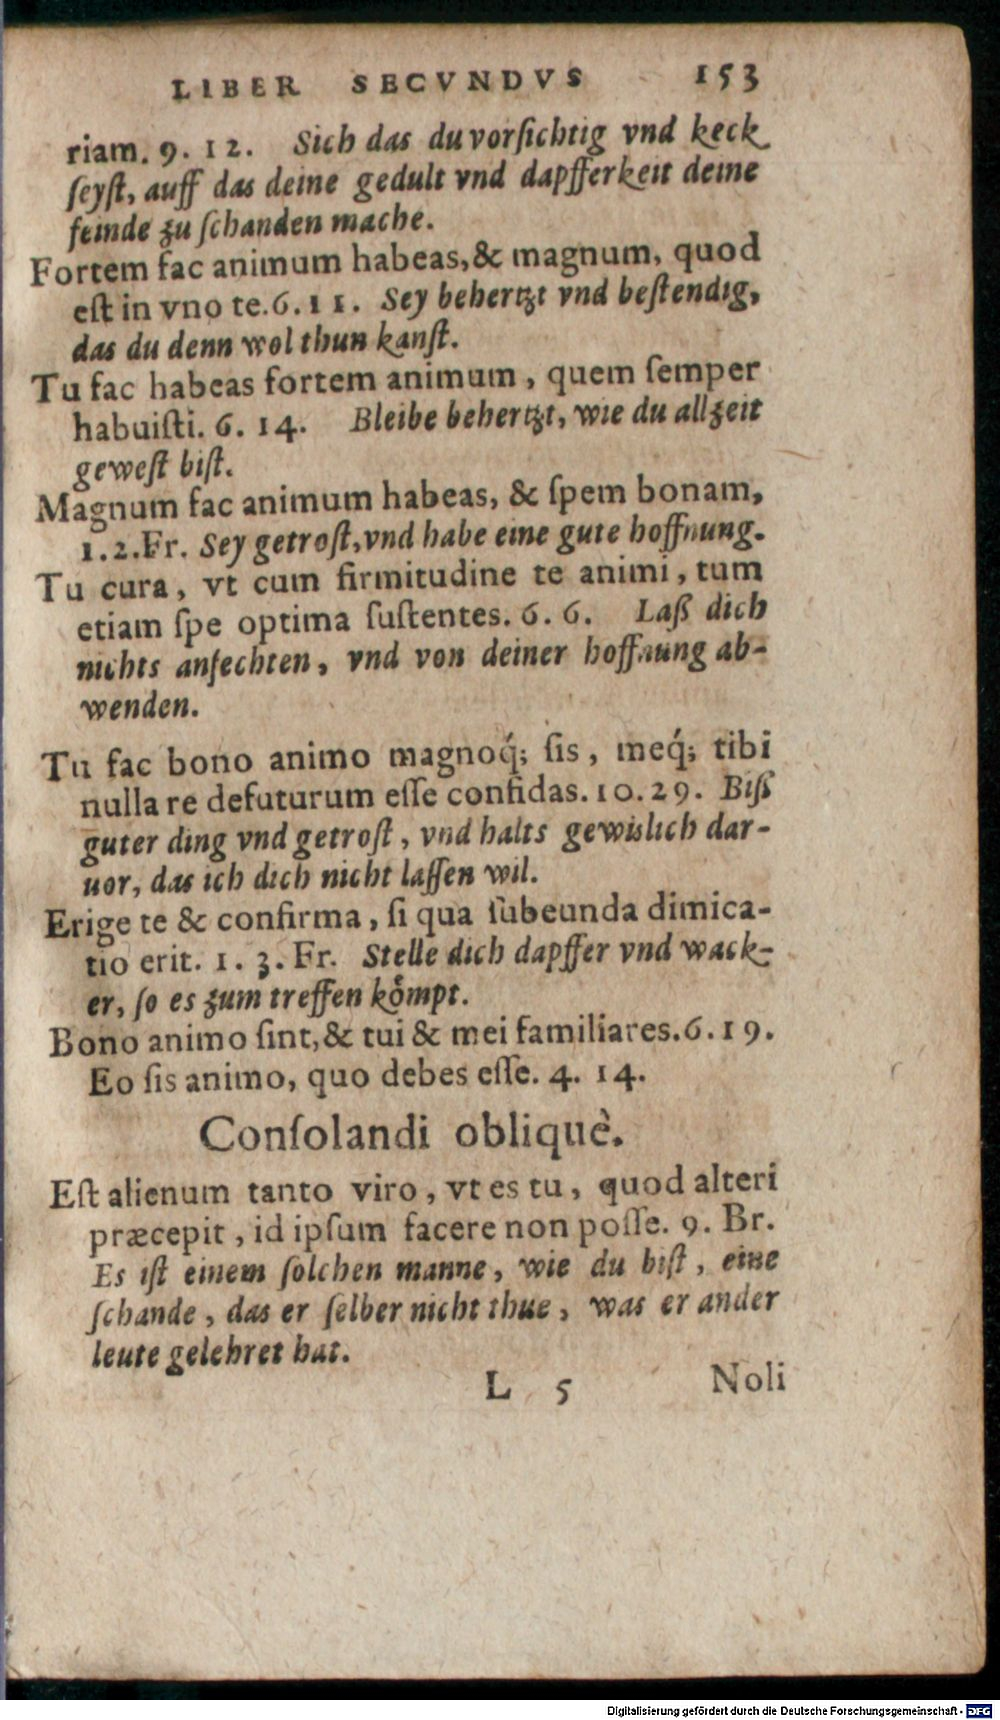 LIBER SECVNDVS 153
riam. 9. 12. Sich das du vorſichtig vnd keck
ſeyſt, auff das deine gedult vnd dapfferkeit deine
feinde zu ſchanden mache.
Fortem fac animum habeas, & magnum, quod
eſt in vno te. 6. 11. Sey behertzt vnd beſtendig,
das du denn wol thun kanſt.
Tu fac habeas fortem animum, quem ſemper
habuiſti. 6. 14. Bleibe behertzt, wie du allzeit
geweſt biſt.
Magnum fac animum habeas, & ſpem bonam,
1. 2. Fr. Sey getroſt, vnd habe eine gute hoffnung.
Tu cura, vt cum firmitudine te animi, tum
etiam ſpe optima ſuſtentes. 6. 6. Laß dich
nichts anfechten, vnd von deiner hoffnung ab-
wenden.
Tu fac bono animo magnoq́; ſis, meq́; tibi
nulla re defuturum eſſe confidas. 10. 29. Biß
guter ding vnd getroſt, vnd halts gewislich dar-
uor, das ich dich nicht laſſen wil.
Erige te & confirma, ſi qua ſubeunda dimica-
tio erit. 1. 3. Fr. Stelle dich dapffer vnd wack-
er, ſo es zum treffen koͤmpt.
Bono animo ſint, & tui & mei familiares. 6. 19.
Eo ſis animo, quo debes eſſe. 4. 14.
Conſolandi obliquè.
Eſt alienum tanto viro, vt es tu, quod alteri
præcepit, id ipſum facere non poſſe. 9. Br.
Es iſt einem ſolchen manne, wie du biſt, eine
ſchande, das er ſelber nicht thue, was er ander
leute gelehret hat.
L 5 Noli
Digitalisierung gefördert durch die Deutsche Forschungsgemeinschaft - DFG